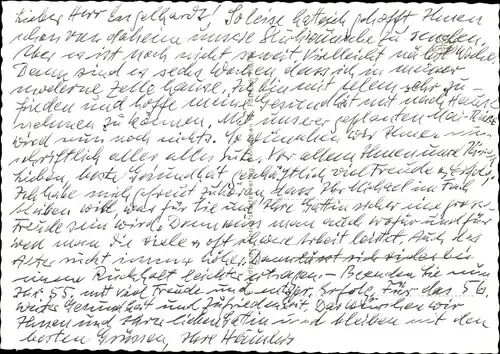 Lieber Herr Engelhardt! So leise hatte ich gehofft Ihnen
schon von daheim unsere Glückwünsche zu senden.
Aber es ist noch nicht soweit. Vielleicht nächste Woche.
Dann sind es sechs Wochen dass ich in meiner
modernen Zelle hause. Ich bin mit allem sehr zu-
frieden und hoffe meine Gesundheit mit nach Hause
nehmen zu können. Mit unserer geplanten Mai-Reise
wird nun noch nichts. So wünschen wir Ihnen nun
schriftlich alles alles Gute. Vor allem Ihnen und Ihren
Lieben, beste Gesundheit geschäftlich viel Freude u. Erfolg.
Ich habe mich gefreut zu hören, dass Ihr Michael im Fach
bleiben will, was für Sie und Ihre Gattin sicher eine grosse
Freude sein wird. Dann weiss man auch wofür und für
wen man die viele u. oft schwere Arbeit leistet. Auch das
Alter rückt immer näher. Dann lässt sich vieles bei
einem Rückhalt leichter ertragen. - Beenden Sie nun
Ihr 55. mit viel Freude und Erfolg. Für das 56.
weiter Gesundheit und Zufriedenheit. Das wünschen wir
Ihnen und Ihrer lieben Gattin und bleiben mit den
besten Grüssen, Ihre